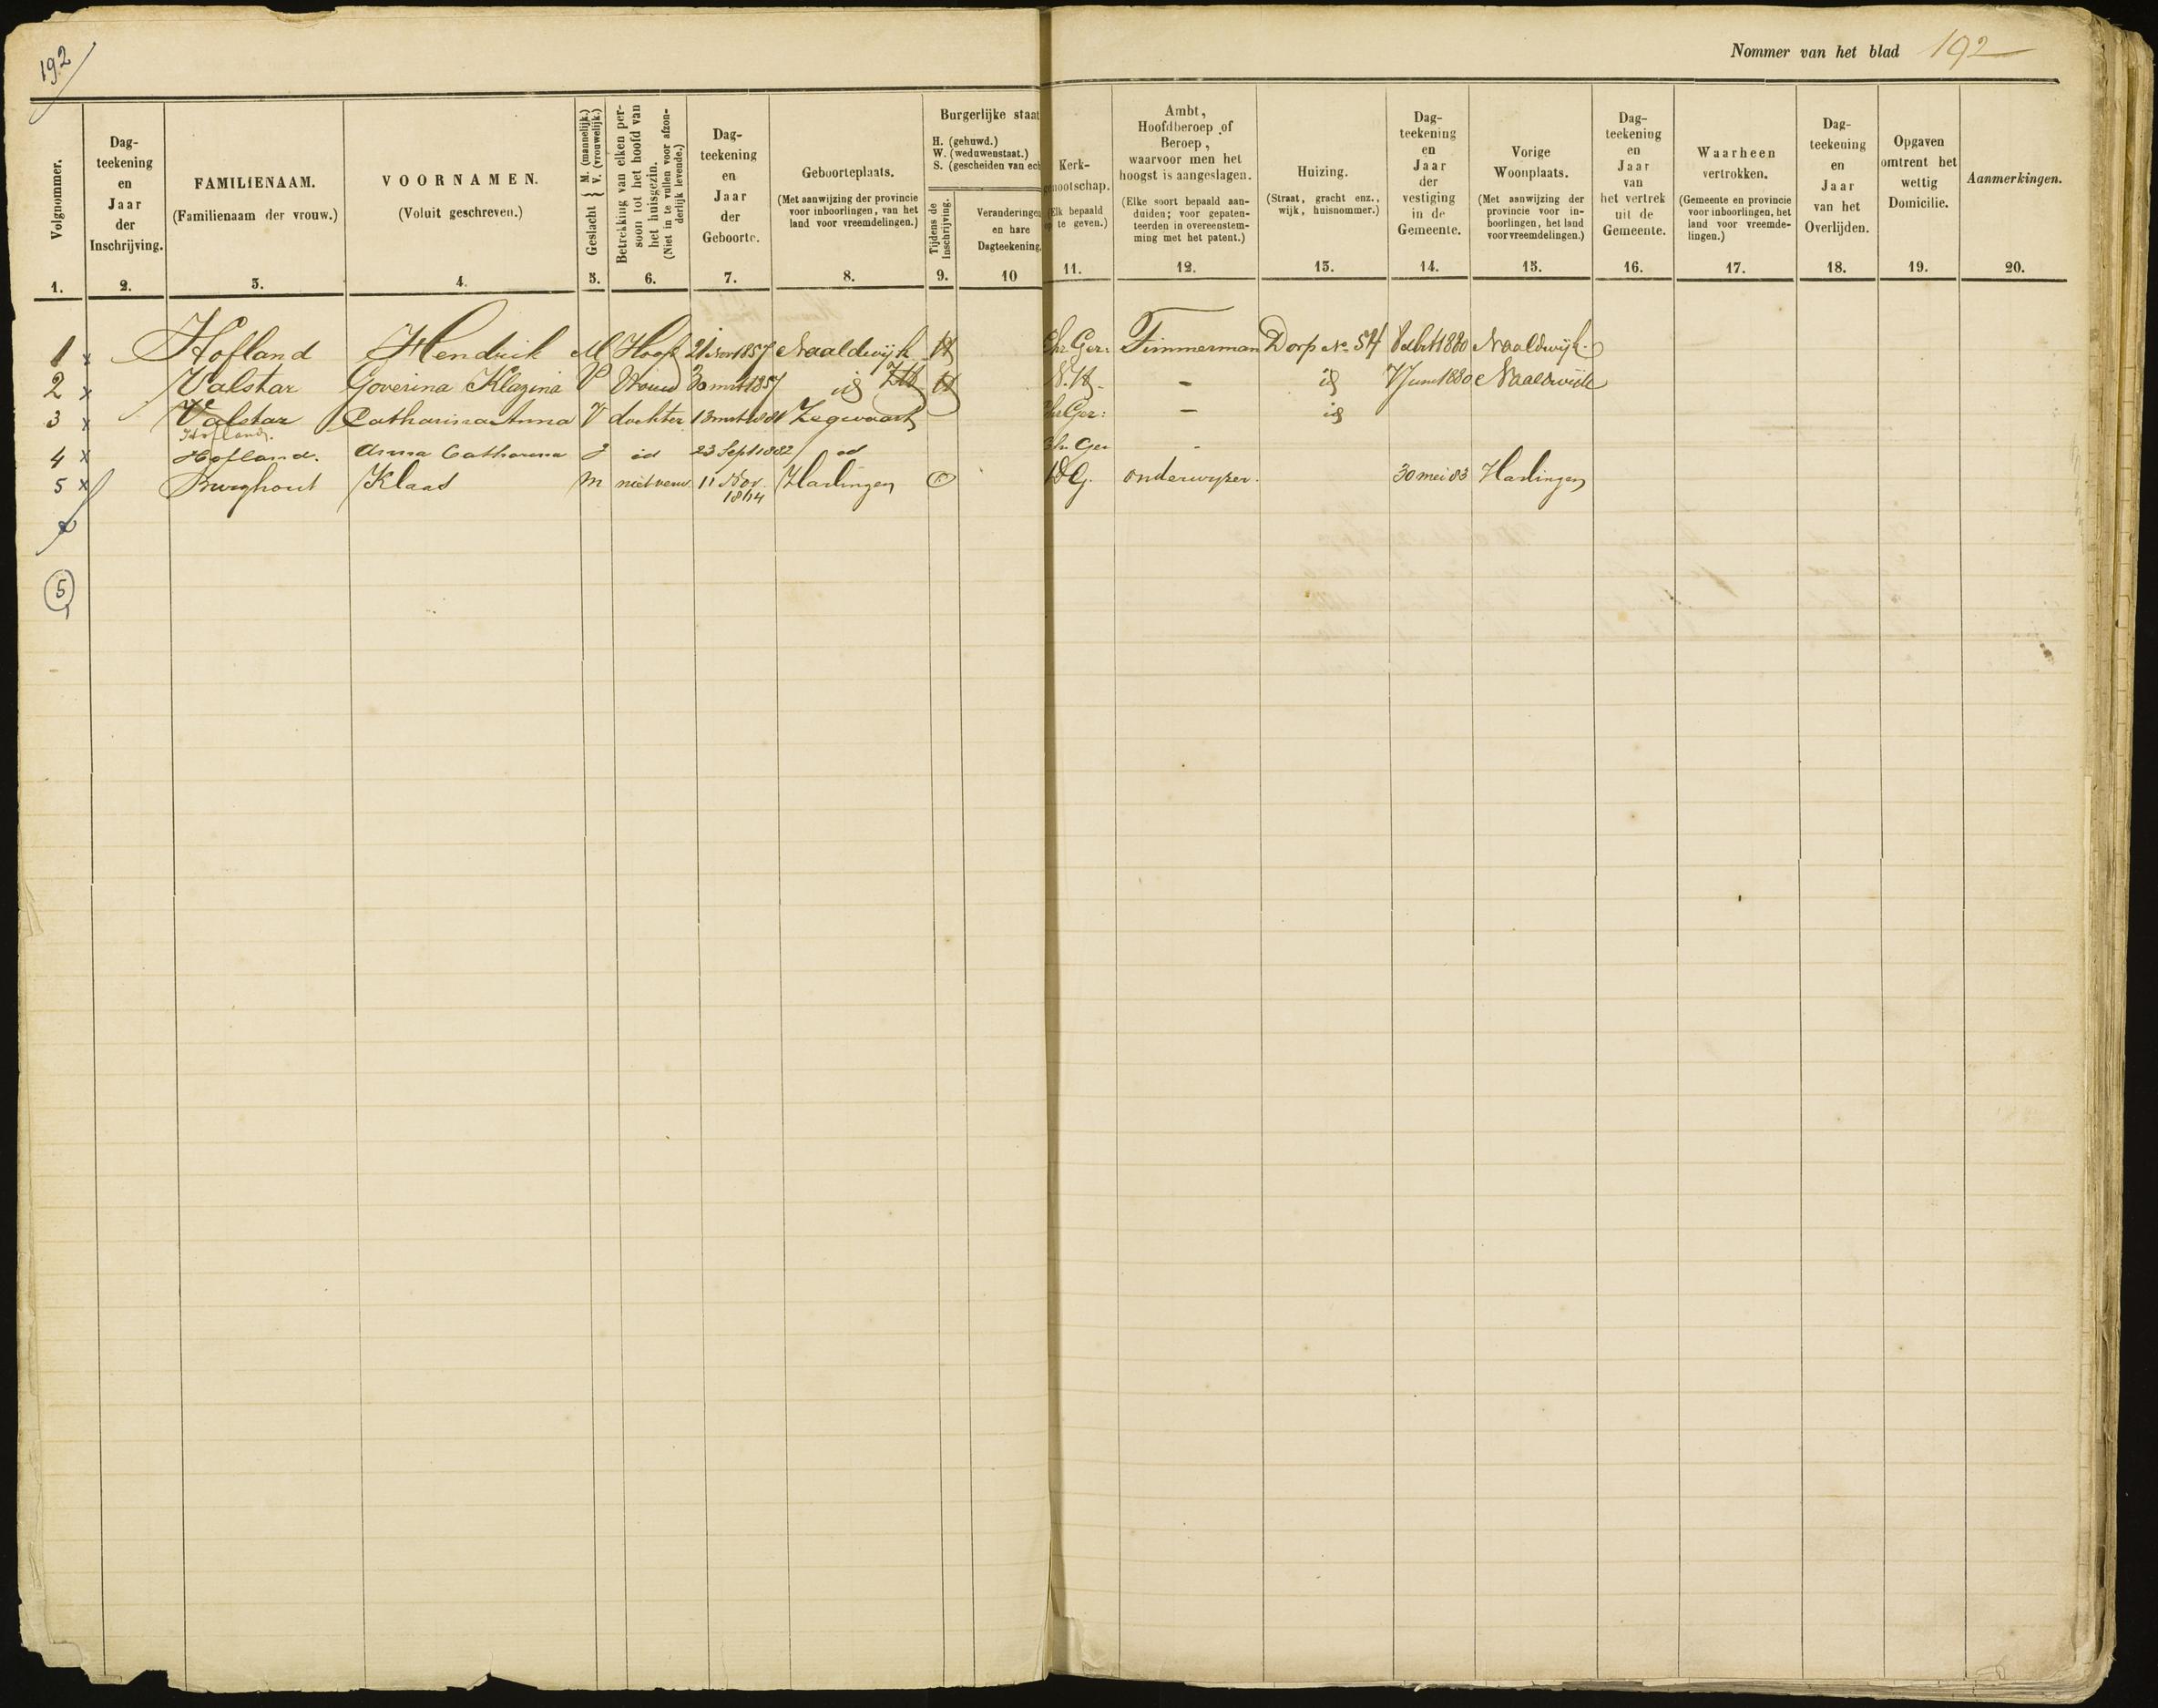 192
Nommer van het blad 192
Volgnommer.
Dag-
teekening
en
Jaar
der
Inschrijving.
FAMILIENAAM.
(Familienaam der vrouw.)
VOORNAMEN.
(Voluit geschreven.)
Geslacht { M. (mannelijk.)
V. (vrouwelijk.)
Betrekking van elken per-
soon tot het hoofd van
het huisgezin.
(Niet in te vullen voor afzon-
derlijk levende.)
Dag-
teekening
en
Jaar
der
Geboorte.
Geboorteplaats.
(Met aanwijzing der provincie
voor inboorlingen, van het
land voor vreemdelingen.)
Burgerlijke staat
H. (gehuwd.)
W. (weduwenstaat.)
S. (gescheiden van ech
Tijdens de
inschrijving.
Veranderingen
en hare
Dagteekening.
Kerk-
genootschap.
(Elk bepaald
op te geven.)
Ambt,
Hoofdberoep of
Beroep,
waarvoor men het
hoogst is aangeslagen.
(Elke soort bepaald aan-
duiden; voor gepaten-
teerden in overeenstem-
ming met het patent.)
Huizing.
(Straat, gracht enz.,
wijk, huisnommer.)
Dag-
teekening
en
Jaar
der
vestiging
in de
Gemeente.
Vorige
Woonplaats.
(Met aanwijzing der
provincie voor in-
boorlingen, het land
voor vreemdelingen.)
Dag-
teekening
en
Jaar
van
het vertrek
uit de
Gemeente.
Waarheen
vertrokken.
(Gemeente en provincie
voor inboorlingen, het
land voor vreemde-
lingen.)
Dag-
teekening
en
Jaar
van het
Overlijden.
Opgaven
omtrent het
wettig
Domicilie.
Aanmerkingen.
1. 2. 3. 4. 5. 6. 7. 8. 9. 10 11. 12. 13. 14. 15. 16. 17. 18. 19. 20.
1 x Hofland Hendrik M Hoofd 21 Nov 1857 Naaldwijk H Chr Ger: Timmerman Dorp No 54 1880 Naaldwijk
2 x Valstar Goverina Klazina V Vrouw 30 mrt 1857 id ZH H N.H. - id 7 Juni 1880 Naaldwijk
3 x Valstar Catharina Anna V dochter 13 mrt 1881 Zegwaart Chr Ger: - id
Hofland.
4 x Hofland. Anna Catharina id 23 Sept 1882 id Chr Ger -
5 x Burghout Klaas M niet verw. 11 Nov. 1864 Harlingen O DG. onderwyzer. 30 mei 83 Harlingen
5